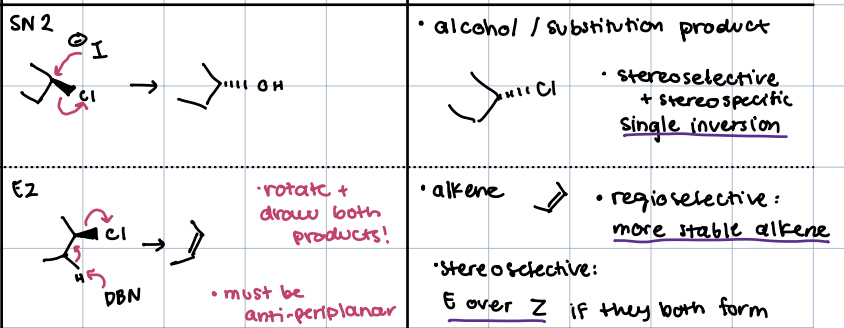 SN2
⊖
I
Cl
OH
• alcohol / substitution product
Cl
• stereoselective
+ stereospecific
single inversion
E2
Cl
H
DBN
• rotate +
draw both
products!
• must be
anti-periplanar
• alkene
• regioselective:
more stable alkene
• stereoselective:
E over Z if they both form